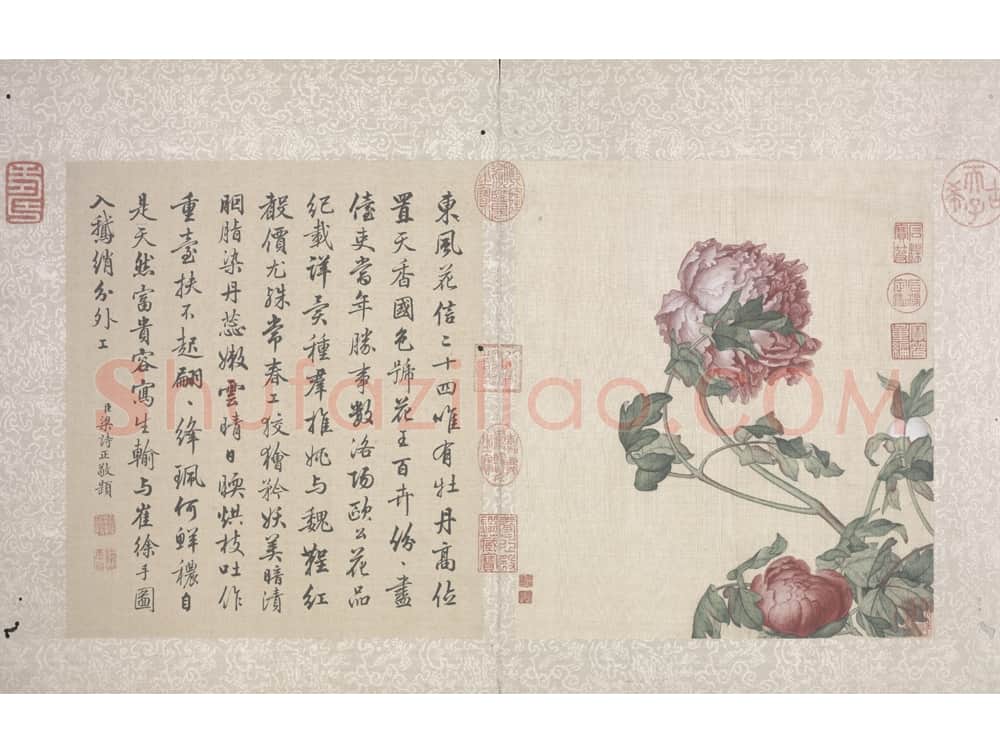 東風花信二十四唯有牡丹高位
置天香國色號花王百卉紛〻盡
儓吏當年勝事數洛陽歐公花品
紀載詳異種羣推姚与魏鞓紅
縠價尤殊常春工狡獪矜妖美暗漬
胭脂染丹蕊嫩雲晴日暎烘枝吐作
重臺扶不起翩〻絳珮何鮮穠自
是天然富貴容寫生輸与崔徐手圖
入鵝綃分外工
臣梁詩正敬題
Shufaziliao.COM